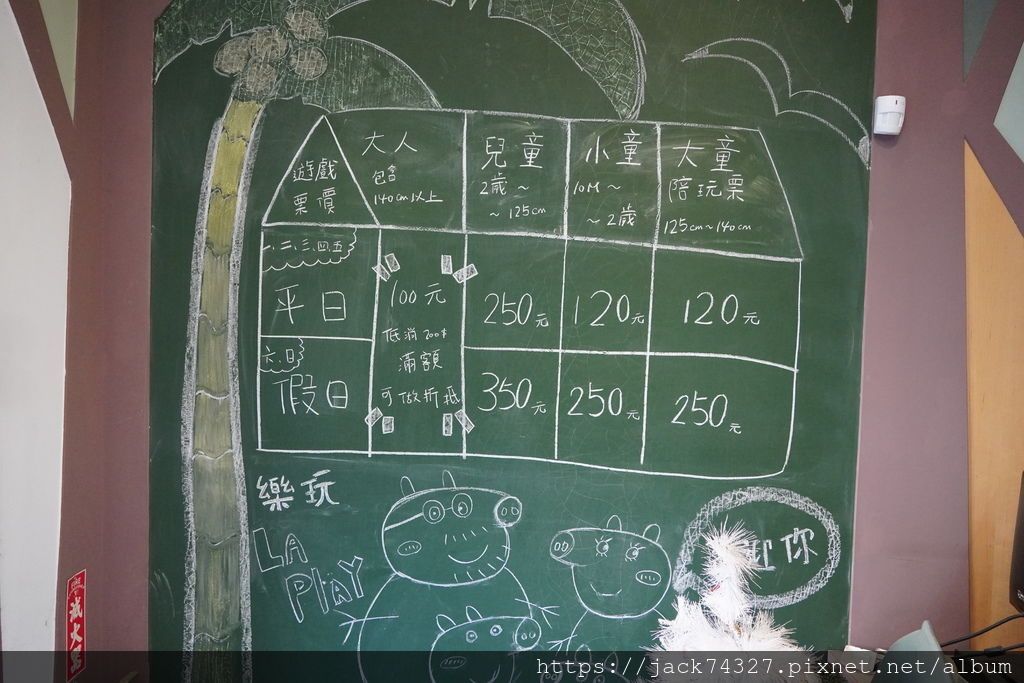 遊戲
票價
大人
包含
140cm以上
兒童
2歲~
~125cm
小童
10M~
~2歲
大童
陪玩票
125cm~140cm
一.二.三.四.五
平日
100元
低消200元
滿額
可做折抵
250元
120元
120元
六.日
假日
350元
250元
250元
樂玩
LA
PLAY
你
滅火器
https://jack74327.pixnet.net/album